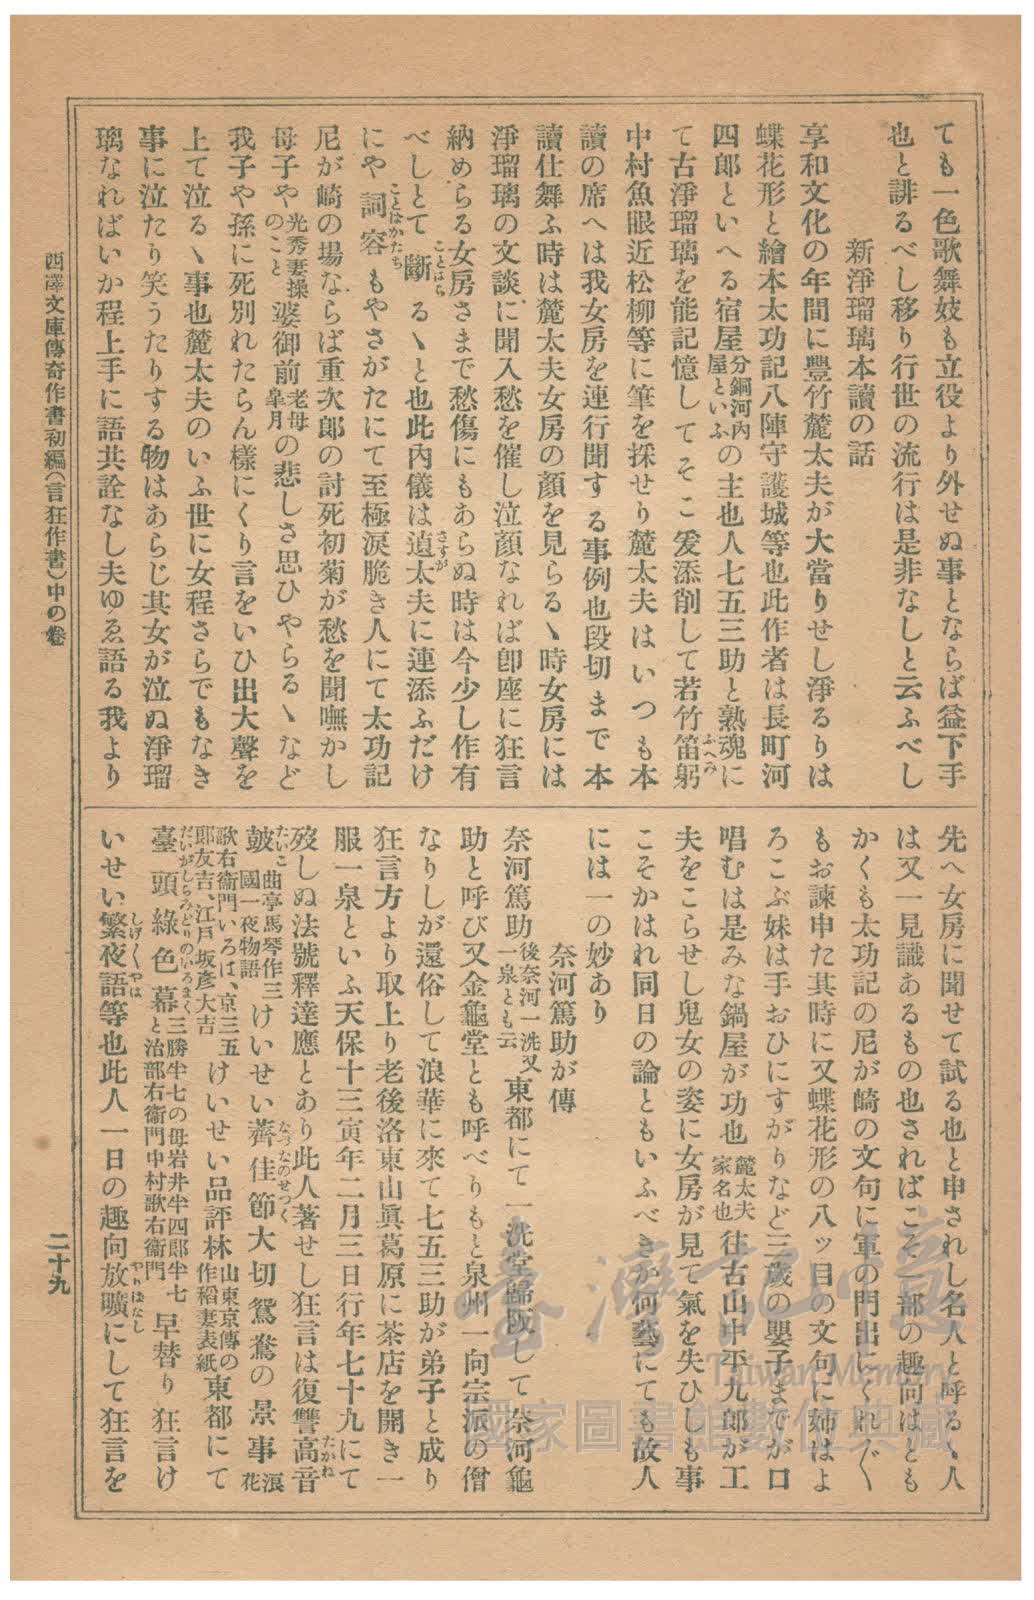 ても一色歌舞妓も立役より外せぬ事とならば益下手
也と誹るべし移り行世の流行は是非なしと云ふべし
新淨瑠璃本讀の話
享和文化の年間に豐竹麓太夫が大當りせし淨るりは
蝶花形と繪本太功記八陣守護城等也此作者は長町河
四郎といへる宿屋分銅河內屋といふの主也人七五三助と熟魂に
て古淨瑠璃を能記憶してそこ爰添削して若竹笛躬ふへみ
中村魚眼近松柳等に筆を採せり麓太夫はいつも本
讀の席へは我女房を連行聞する事例也段切まで本
讀仕舞ふ時は麓太夫女房の顏を見らるゝ時女房には
淨瑠璃の文談に聞入愁を催し泣顏なれば卽座に狂言
納めらる女房さまで愁傷にもあらぬ時は今少し作有
べしとて斷ことはらるゝと也此内儀は遉さすが太夫に連添ふだけ
にや詞容ことはかたちもやさがたにて至極淚脆き人にて太功記
尼が崎の場ならば重次郎の討死初菊が愁を聞嘸かし
母子や光秀妻操のこと婆御前老母皐月の悲しさ思ひやらるゝなど
我子や孫に死別れたらん樣にくり言をいひ出大聲を
上て泣るゝ事也麓太夫のいふ世に女程さらでもなき
事に泣たり笑うたりする物はあらじ其女が泣ぬ淨瑠
璃なればいか程上手に語共詮なし夫ゆゑ語る我より
先へ女房に聞せて試る也と申されし名人と呼るゝ人
は又一見識あるもの也さればこそ一部の趣向はとも
かくも太功記の尼が崎の文句に軍の門出にくれ〲
もお諫申た其時に又蝶花形の八ッ目の文句に姉はよ
ろこぶ妹は手おひにすがりなど三歲の嬰子までが口
唱むは是みな鍋屋が功也麓太夫家名也往古山中平九郎が工
夫をこらせし鬼女の姿に女房が見て氣を失ひしも事
こそかはれ同日の論ともいふべきか何藝にても故人
には一の妙あり
奈河篤助が傳
奈河篤助後奈河一洗又一泉とも云東都にて一洗堂歸阪して奈河龜
助と呼び又金龜堂とも呼べりもと泉州一向宗派の僧
なりしが還俗して浪華に來て七五三助が弟子と成り
狂言方より取上り老後洛東山眞葛原に茶店を開き一
服一泉といふ天保十三寅年二月三日行年七十九にて
歿しぬ法號釋達應とあり此人著せし狂言は復讐高音たかね
皷たいこ曲亭馬琴作三國一夜物語けいせい薺佳節なづなのせつく大切鴛鴦の景事浪花
歌右衞門いろは、京三五郎友吉、江戸坂彥大吉けいせい品評林山東京傳の作稻妻表紙東都にて
臺頭綠色幕だいがしらみどりのいろまくと三勝半七の母岩井半四郎半七治部右衞門中村歌右衞門早替り狂言け
いせい繁夜語しげくやは等也此人一日の趣向放曠やりはなしにして狂言を
西澤文庫傳奇作書初編(言狂作書)中の卷
二十九
臺灣記憶
Taiwan Memory
國家圖書館數位典藏